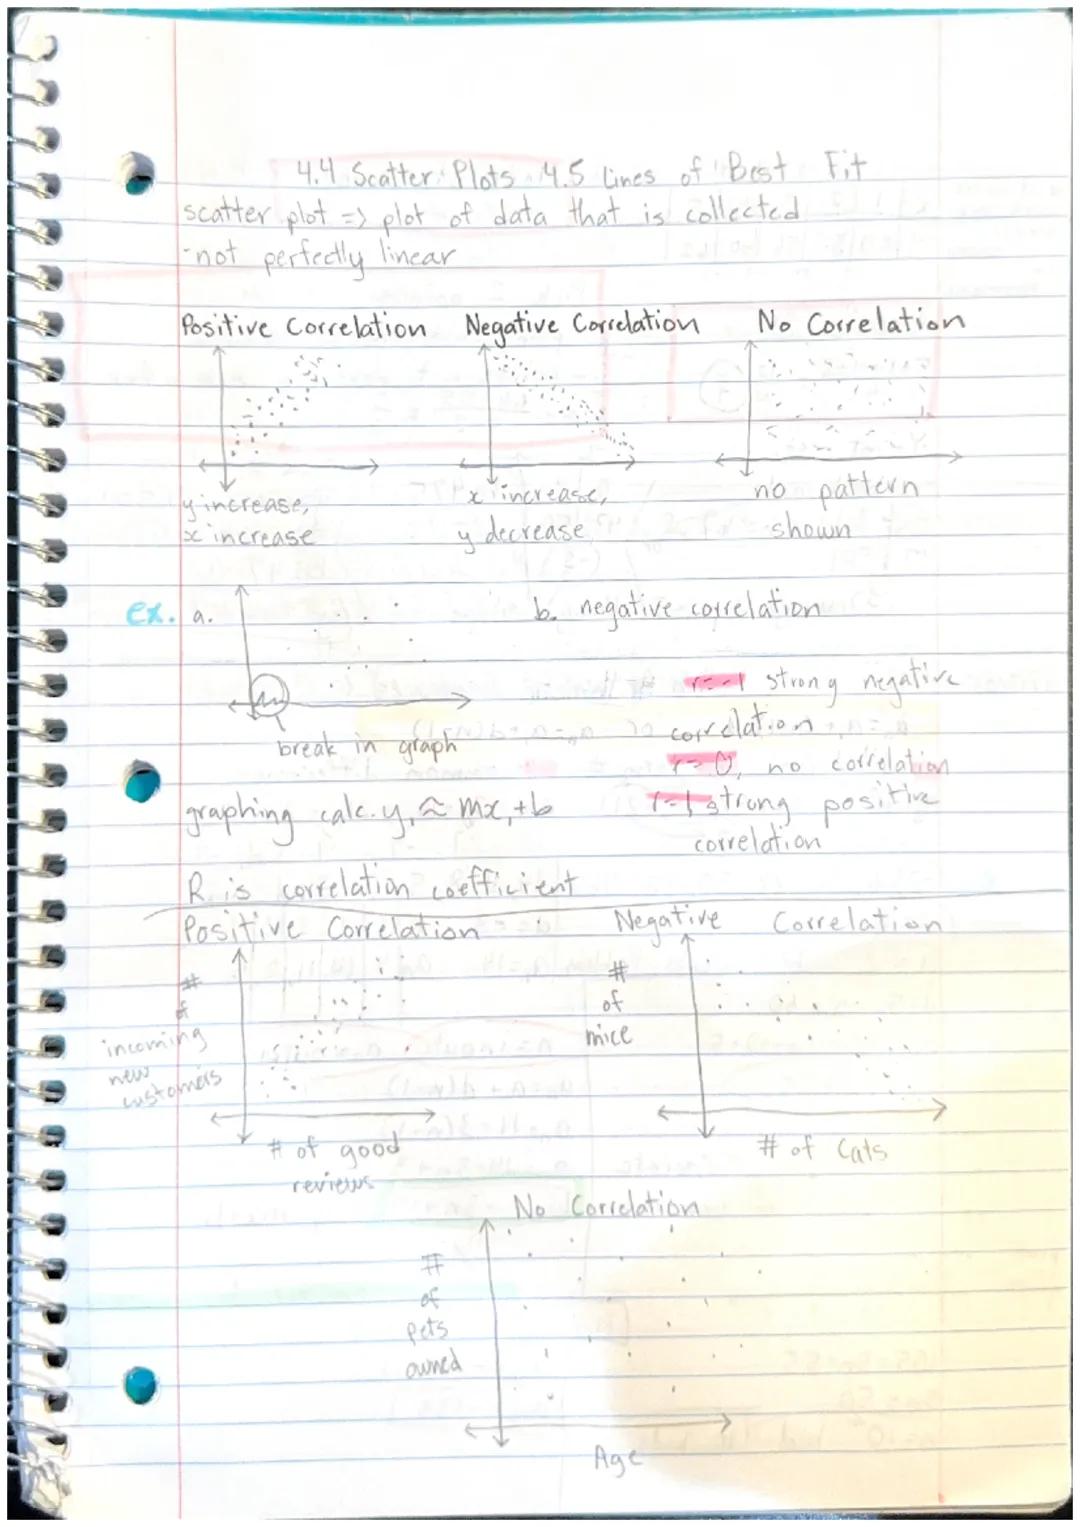 4.4 Scatter Plots 4.5 Lines of Best Fit
scatter plot => plot of data that is collected
-not perfectly linear
Positive Correlation Negative Correlation No Correlation
y increase,
x increase
x increase,
y decrease
no pattern
shown
ex. a.
b. negative correlation
break in graph
r=-1 strong negative
correlation
r=0, no correlation
r=1 strong positive
correlation
graphing calc. y₁ ≈ mx₁+b
R is correlation coefficient
Positive Correlation
#
of
incoming
new
customers
# of good
reviews
Negative Correlation
#
of
mice
# of Cats
No Correlation
#
of
pets
owned
Age